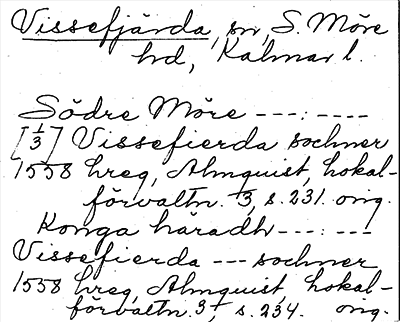 Vissefjärda, sn, S. Möre
hd, Kalmar l.
Södre Möre ---:----
[1/3] Vissefierda sochner
1558 hreg, Almquist, Lokal-
förvaltn. 3, s. 231. orig.
Konga häradh ---:---
Vissefierda --- sochner
1558 hreg, Almquist, Lokal-
förvaltn. 3, s. 234. orig.